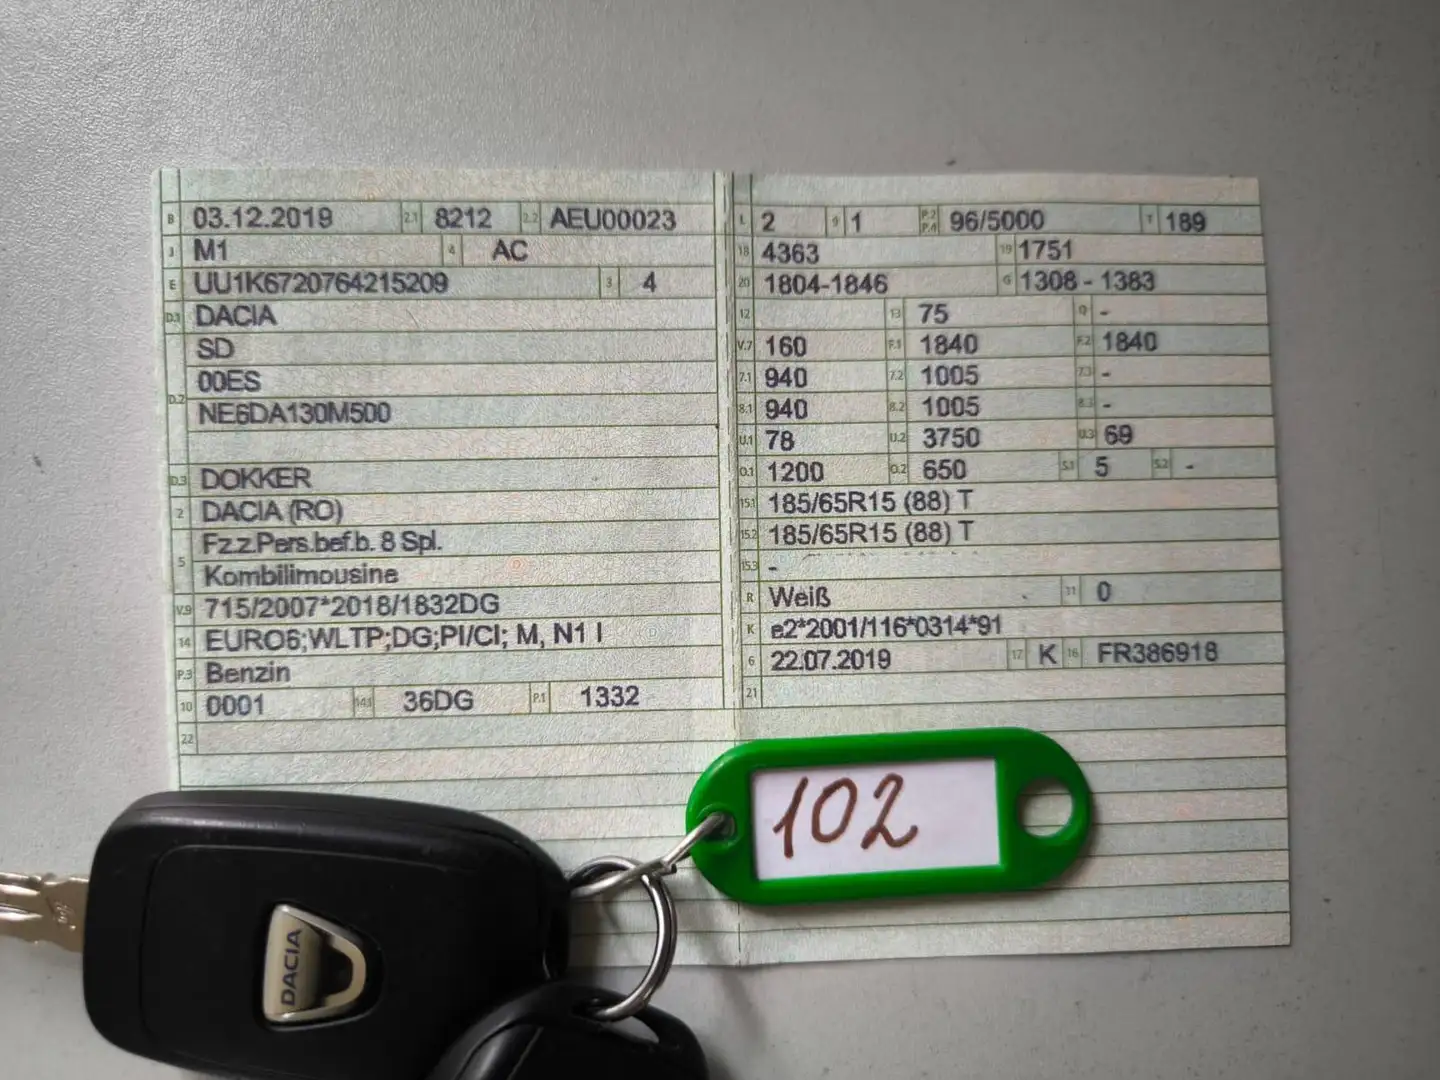 B 03.12.2019 2.1 8212 2.2 AEU00023
J M1 4 AC
E UU1K6720764215209 3 4
D.1 DACIA
SD
D.2 00ES
NE6DA130M500
D.3 DOKKER
2 DACIA (RO)
Fz.z.Pers.bef.b. 8 Spl.
5 Kombilimousine
V.9 715/2007*2018/1832DG
14 EURO6;WLTP;DG;PI/CI; M, N1 I
P.3 Benzin
10 0001 14.1 36DG P.1 1332
22
L 2 9 1 P.2 P.4 96/5000 T 189
18 4363 19 1751
20 1804-1846 G 1308 - 1383
12 13 75 Q -
V.7 160 F.1 1840 F.2 1840
7.1 940 7.2 1005 7.3 -
8.1 940 8.2 1005 8.3 -
U.1 78 U.2 3750 U.3 69
O.1 1200 O.2 650 S.1 5 S.2 -
15.1 185/65R15 (88) T
15.2 185/65R15 (88) T
15.3 -
R Weiß 11 0
K e2*2001/116*0314*91
6 22.07.2019 17 K 16 FR386918
21
102
DACIA